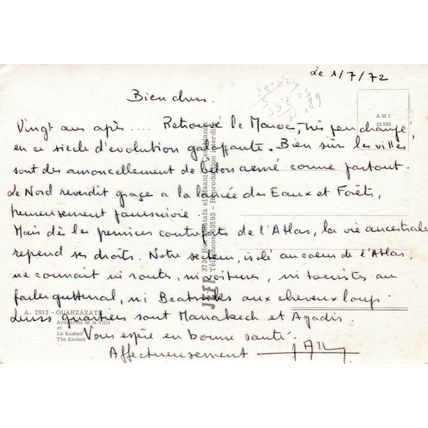 le 1/7/72
Bien chers.
Vingt ans après .... Retrouvé le Maroc, très peu changé,
en ce siècle d'évolution galopante. Bien sûr les villes
sont des amoncellement de béton armé comme partout.
Le Nord reverdit grace a la des Eaux et Forêts,
heureusement poursuivie.
Mais dès les premiers contreforts de l'Atlas, la vie ancestrale
reprend ses droits. Notre secteur, isolé au coeur de l'Atlas
ne connait ni routs, ni voitures, ni tourists au
parler guttural, ni Beatnicks aux cheveux longs.
Leurs quartiers sont Marrakech et Agadir.
Vous espère en bonne santé.
Affectueusement
AMI
A. 2012 - OUARZAZATE
de la Ville
et
La Kasbah
The Kasbah
JEFF